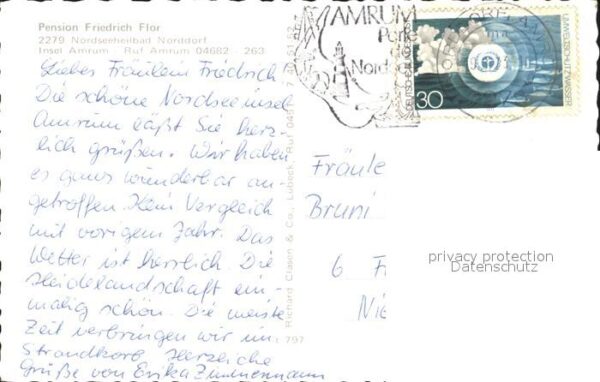 Pension Friedrich Flor
2279 Nordseeheilbad Norddorf
Insel Amrum - Ruf Amrum 04682 - 263
Liebes Fräulein Friedrich
Die schöne Nordseeinsel
Amrum läßt Sie herz-
lich grüßen. Wir haben
es ganz wunderbar an-
getroffen. Kein Vergleich
mit vorigem Jahr. Das
Wetter ist herrlich. Die
Heidelandschaft ein-
malig schön. Die meiste
Zeit verbringen wir im
Strandkorb. Herzliche
Grüße von Erika Zimmermann
Richard Clasen & Co., Lübeck, Ruf
797
AMRUM
Perle
der
Nord
30
UMWELTSCHUTZ WASSER
DEUTSCHE BUNDESPOST
Fräule
Bruni
6 F
Nie
privacy protection
Datenschutz